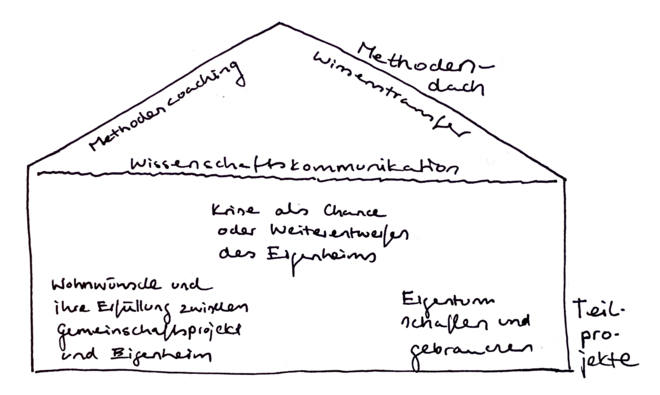 Methoden-
dach
Methodencoaching
Wissenstransfer
Wissenschaftskommunikation
Krise als Chance
oder Weiterentwerfen
des Eigenheims
Wohnwünsche und
ihre Erfüllung zwischen
Gemeinschaftsprojekt
und Eigenheim
Eigentum
schaffen und
gebrauchen
Teil-
pro-
jekte